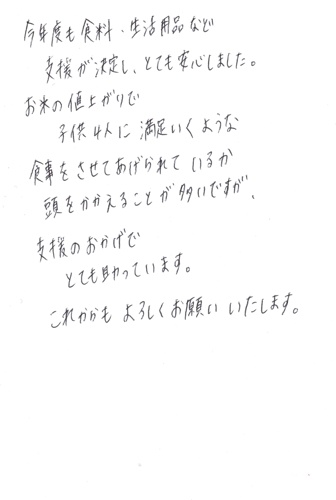 今年度も食料・生活用品など
支援が決定し、とても安心しました。
お米の値上がりで
子供4人に満足いくような
食事をさせてあげられているか
頭をかかえることが多いですが、
支援のおかげで
とても助っています。
これかかも よろしくお願いいたします。